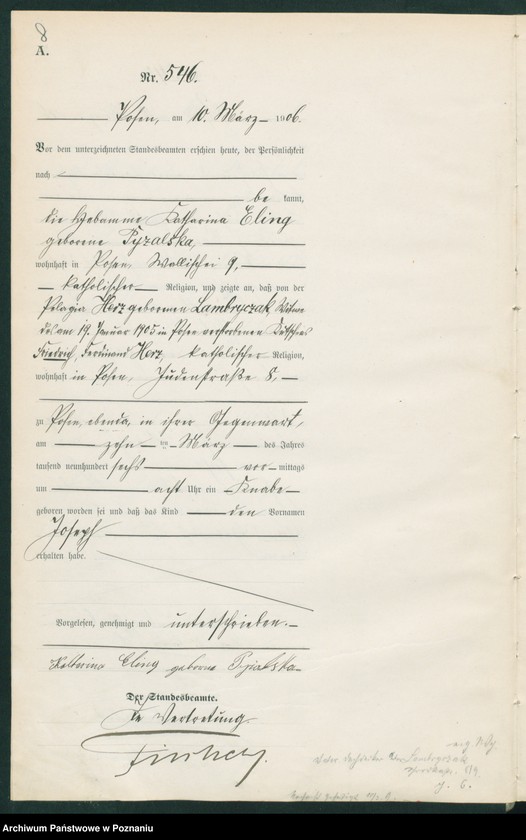 8
A.
Nr. 546.
Posen, am 10. März 1906.
Vor dem unterzeichneten Standesbeamten erschien heute, der Persönlichkeit
nach
be kannt,
die Hebamme Katharina Eling
geborene Pyzalska,
wohnhaft in Posen, Wallischei 9,
katholischer Religion, und zeigte an, daß von der
Pelagia Herz geborenen Lambryczak, Witwe
des am 19. Januar 1905 in Posen verstorbenen Kutschers
Friedrich, Ferdinand Herz, katholischer Religion,
wohnhaft in Posen, Judenstraße 8,
zu Posen, ebenda, in ihrer Gegenwart,
am zehn ten März des Jahres
tausend neunhundert sechs vor mittags
um acht Uhr ein Knabe
geboren worden sei und daß das Kind den Vornamen
Joseph
erhalten habe.
Vorgelesen, genehmigt und unterschrieben.
Katharina Eling geborene
Der Standesbeamte.
In Vertretung
Archiwum Państwowe w Poznaniu